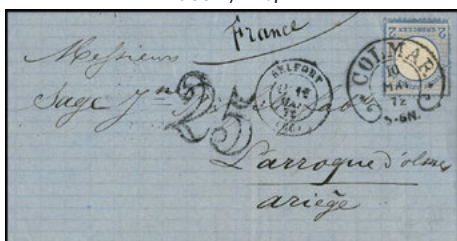 France
Messieurs
Sage Jne
25
BELFORT
12
MAI
72
(66)
COLMAR
10
MAI
72
5-6N.
2
Larroque d'olmes
ariége